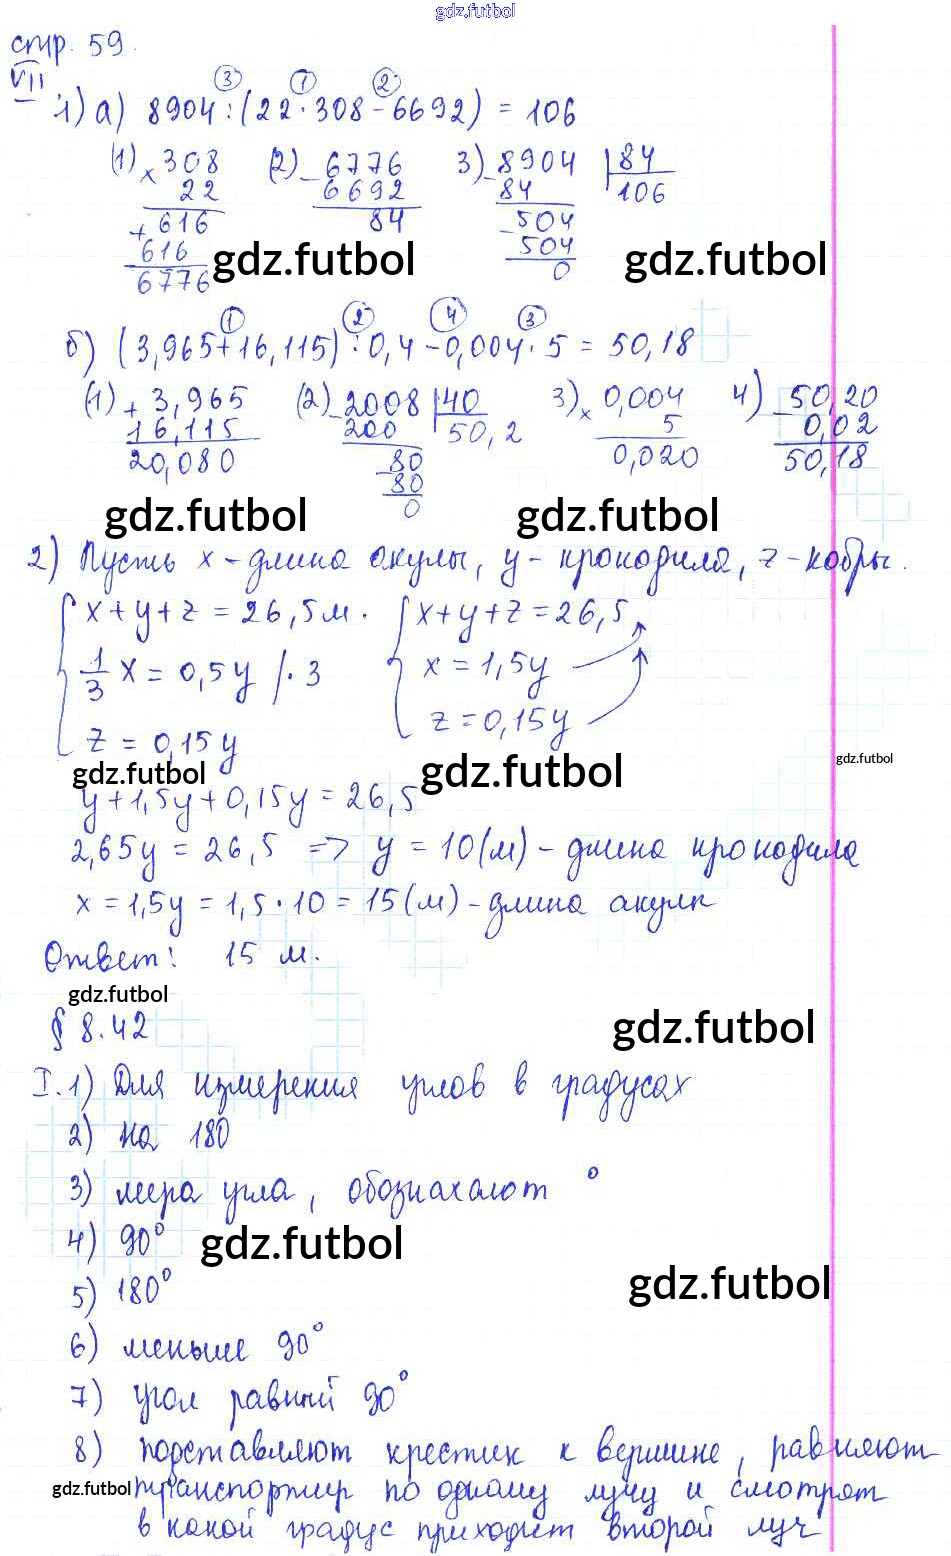 gdz.futbol
стр. 59.
VII 1) а) 8904 : (22 · 308 - 6692) = 106
③ ① ②
(1) × 308 (2) - 6776 3) - 8904 | 84
22 6692 84 106
+ 616 84 - 504
616 504
6776 0
gdz.futbol gdz.futbol
① ② ④ ③
б) (3,965 + 16,115) : 0,4 - 0,004 · 5 = 50,18
(1) + 3,965 (2) - 2008 | 40 3) × 0,004 4) - 50,20
16,115 200 50,2 5 0,02
20,080 - 80 0,020 50,18
80
0
gdz.futbol gdz.futbol
2) Пусть x - длина акулы, y - крокодила, z - кобры.
x + y + z = 26,5 м. x + y + z = 26,5
1/3 x = 0,5y /· 3 x = 1,5y
z = 0,15y z = 0,15y
gdz.futbol gdz.futbol gdz.futbol
y + 1,5y + 0,15y = 26,5
2,65y = 26,5 => y = 10 (м) - длина крокодила
x = 1,5y = 1,5 · 10 = 15 (м) - длина акулы
Ответ: 15 м.
gdz.futbol
§ 8.42 gdz.futbol
I. 1) Для измерения углов в градусах
2) на 180
3) мера угла, обозначают °
4) 90° gdz.futbol
5) 180° gdz.futbol
6) меньше 90°
7) угол равный 90°
8) подставляют крестик к вершине, равняют
gdz.futbol транспортир по одному лучу и смотрят
в какой градус приходит второй луч